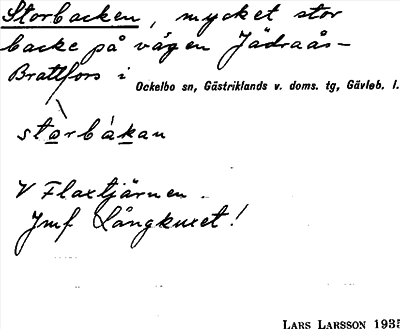 Storbacken, mycket stor
backe på vägen Jädraås-
Brattfors i Ockelbo sn, Gästriklands v. doms. tg, Gävleb. l.
storbákan
V Flaxtjärnen.
Jmf Långkuset!
LARS LARSSON 1935